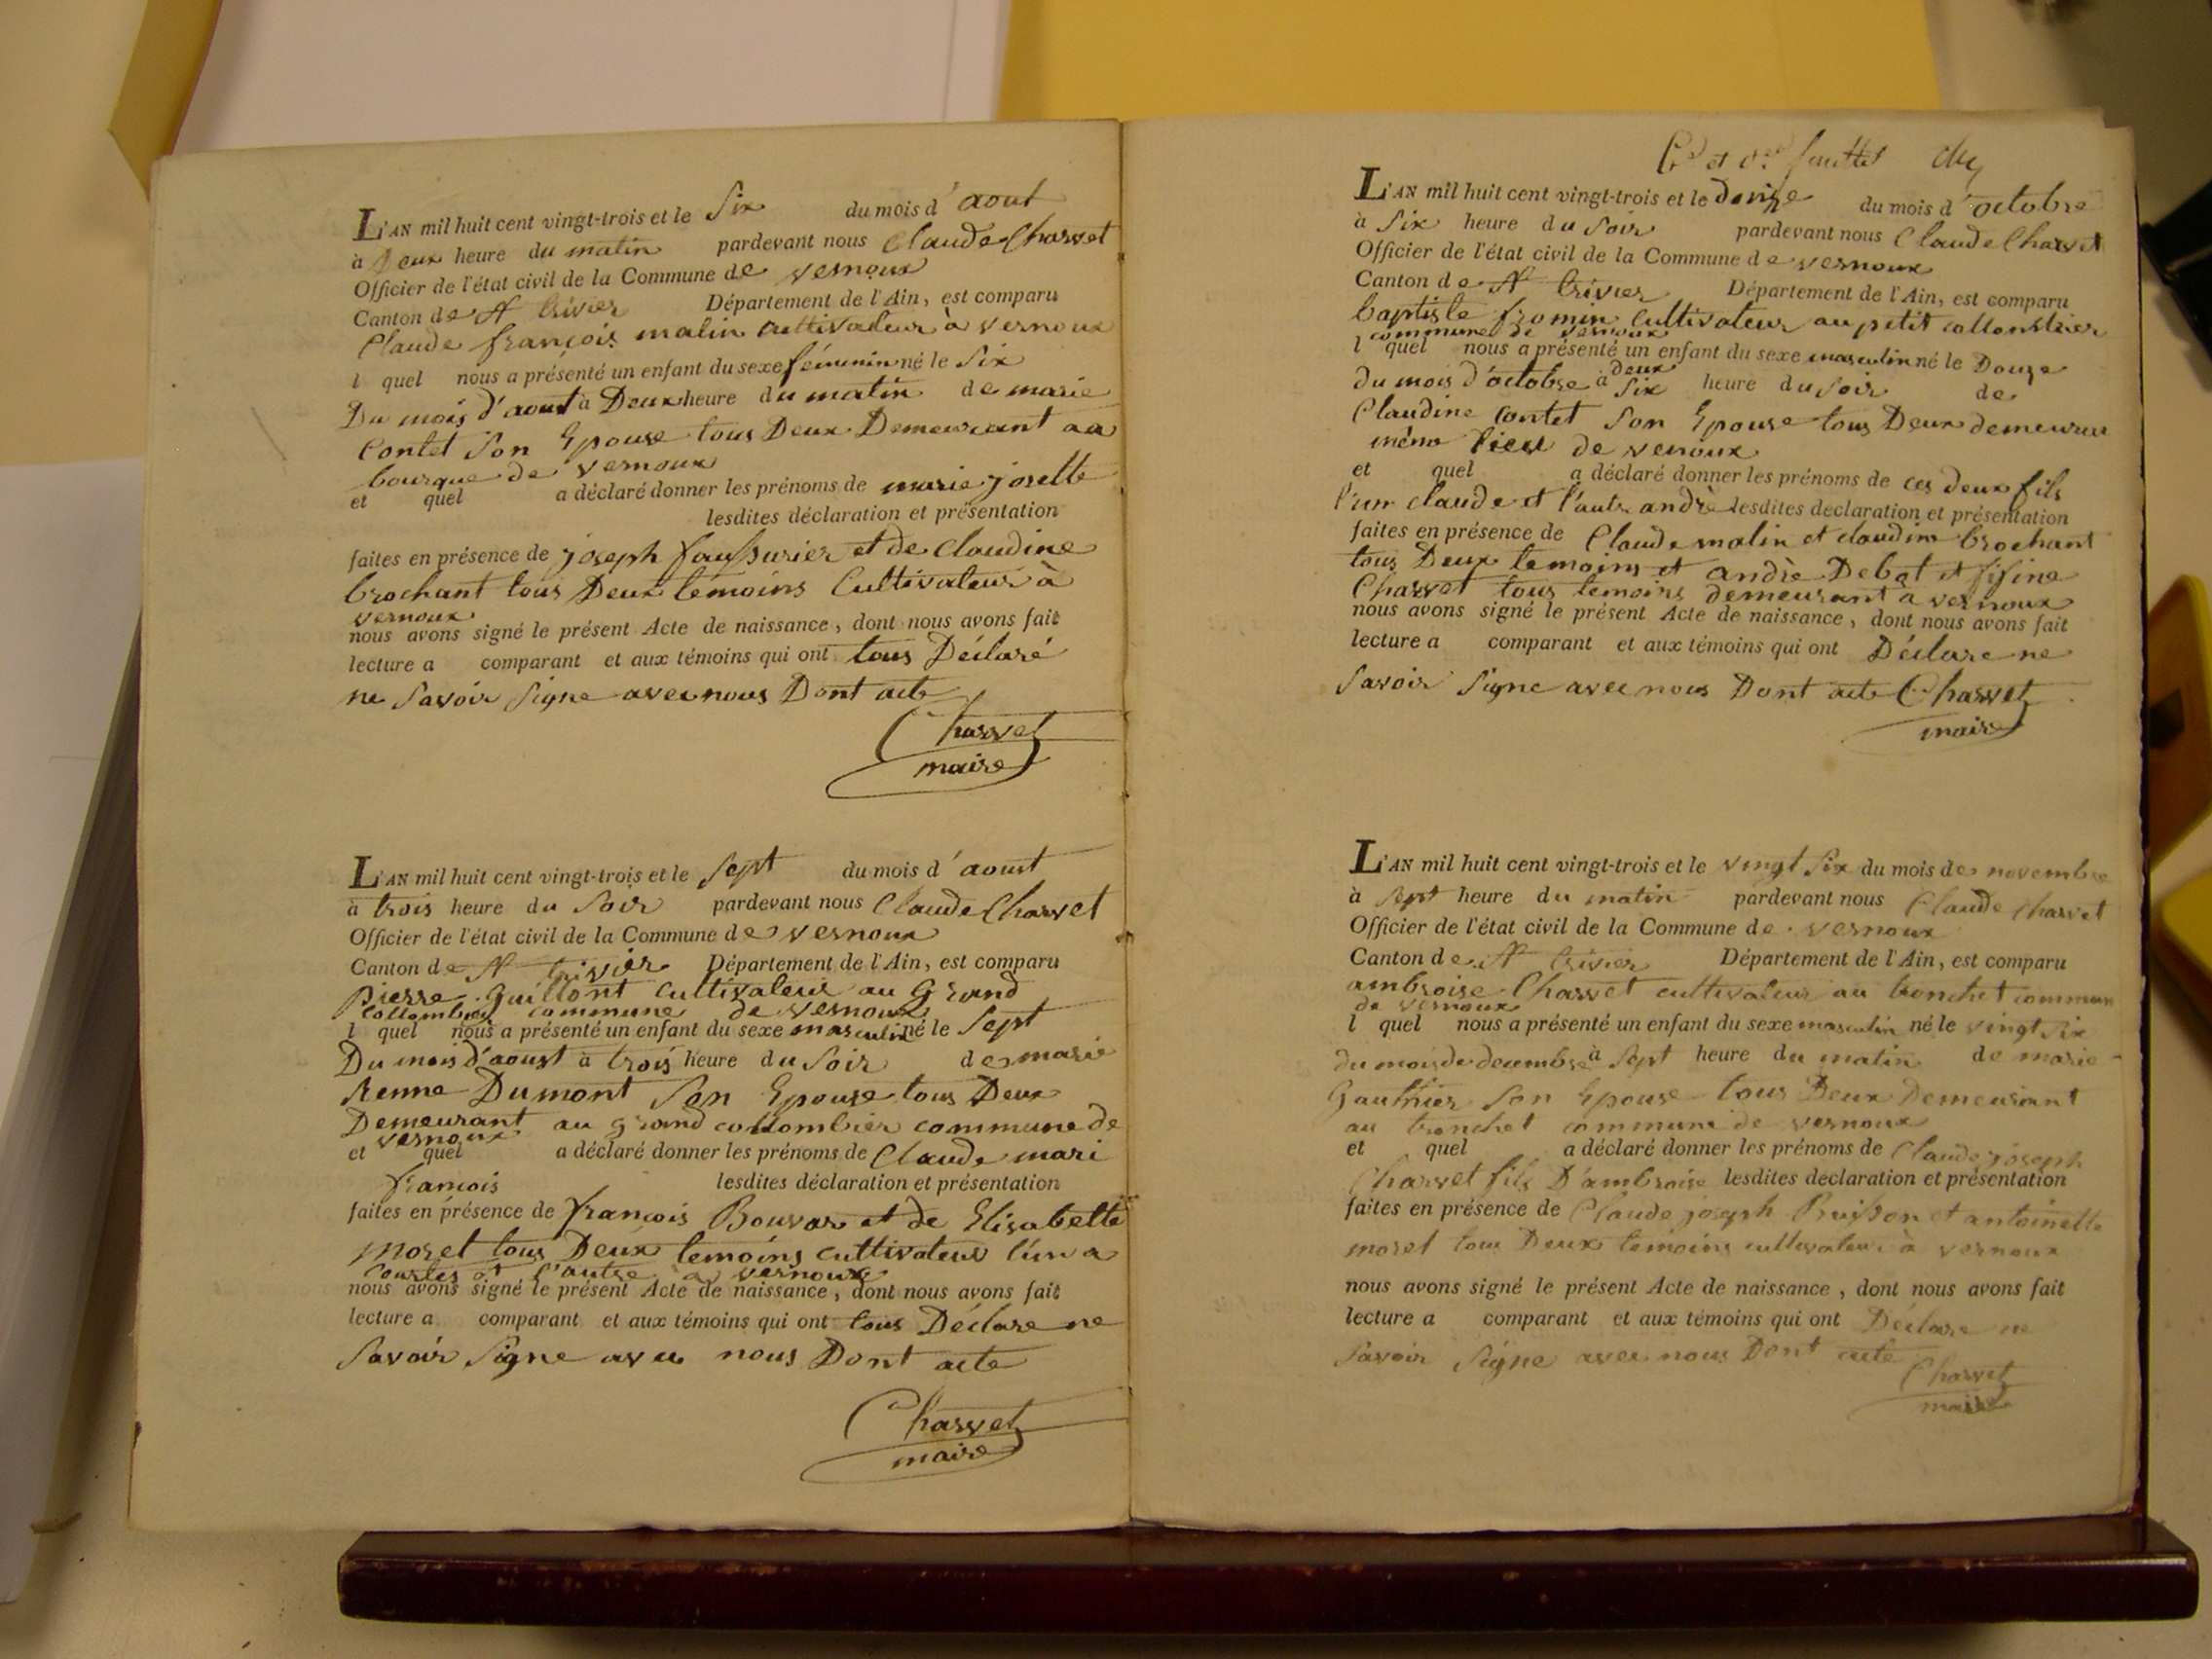 L'AN mil huit cent vingt-trois et le Six du mois d'aout
à Deux heure du matin pardevant nous Claude Charvet
Officier de l'état civil de la Commune de vernoux
Canton de St trivier Département de l'Ain, est comparu
Claude françois malin cultivateur à vernoux
l quel nous a présenté un enfant du sexe féminin né le Six
Du mois d'aout à Deux heure du matin de marie
Contet Son Epouse tous Deux Demeurant au
bourque de vernoux
et quel a déclaré donner les prénoms de marie josette
lesdites déclaration et présentation
faites en présence de joseph faussurier et de Claudine
brochant tous Deux temoins Cultivateur à
vernoux
nous avons signé le présent Acte de naissance, dont nous avons fait
lecture a comparant et aux témoins qui ont tous Déclaré
ne Savoir Signe avec nous Dont acte
Charvet
maire
L'AN mil huit cent vingt-trois et le Sept du mois d'aoust
à trois heure du Soir pardevant nous Claude Charvet
Officier de l'état civil de la Commune de vernoux
Canton de St trivier Département de l'Ain, est comparu
pierre guillont cultivateur au Grand
Collombier commune de vernoux
l quel nous a présenté un enfant du sexe masculin né le Sept
Du mois d'aoust à trois heure du Soir de marie
Renne Dumont Son Epouse tous Deux
Demeurant au grand collombier commune de
vernoux
et quel a déclaré donner les prénoms de Claude mari
francois lesdites déclaration et présentation
faites en présence de francois Bouvar et de Elisabette
moret tous Deux temoins cultivateur l'un a
Courtes et l'autre a vernoux
nous avons signé le présent Acte de naissance, dont nous avons fait
lecture a comparant et aux témoins qui ont tous Déclare ne
Savoir Signe avec nous Dont acte
Charvet
maire
feuillet
L'AN mil huit cent vingt-trois et le douze du mois d'octobre
à Six heure du Soir pardevant nous Claude Charvet
Officier de l'état civil de la Commune de vernoux
Canton de St trivier Département de l'Ain, est comparu
baptiste fromin Cultivateur au petit
commune de vernoux
l quel nous a présenté un enfant du sexe masculin né le Douze
deux
du mois d'octobre à Six heure du Soir de
Claudine Contet Son Epouse tous Deux
même lieu de vernoux
et quel a déclaré donner les prénoms de ces deux fils
l'un claude et l'autr andrè lesdites declaration et présentation
faites en présence de Claude malin et claudine brochant
tous Deux temoins et andrè Debat et fifine
Charvet tous temoins demeurant a vernoux
nous avons signé le présent Acte de naissance, dont nous avons fait
lecture a comparant et aux témoins qui ont Déclare ne
Savoir Signe avec nous Dont acte Charvet
maire
L'AN mil huit cent vingt-trois et le vingt Six du mois de novembre
à Sept heure du matin pardevant nous Claude Charvet
Officier de l'état civil de la Commune de vernoux
Canton de St trivier Département de l'Ain, est comparu
ambroise Charvet cultivateur au tronchet commun
de vernoux
l quel nous a présenté un enfant du sexe masculin né le vingt Six
du mois de decembre à Sept heure du matin de marie
Gauthier Son Epouse tous Deux Demeurant
au tronchet commune de vernoux
et quel a déclaré donner les prénoms de Claude joseph
Charvet fils D'ambroise lesdites declaration et présentation
faites en présence de Claude joseph Buisson et antoinette
moret tous Deux temoins cultivateur à vernoux
nous avons signé le présent Acte de naissance, dont nous avons fait
lecture a comparant et aux témoins qui ont Déclare ne
Savoir Signe avec nous Dont acte
Charvet
maire